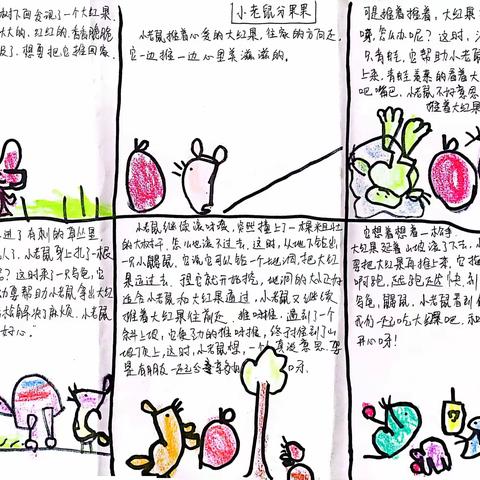 树下面发现了一个大红果
大大的,红红的,香香脆脆
极了,想要把它推回家
小老鼠分果果
小老鼠推着心爱的大红果,往家的方向走,
它一边推一边心里美滋滋的。
可是推着推着,大红果
嘛,怎么办呢?这时,
只青蛙,它帮助小老鼠
上来,青蛙羡慕的看着大
吧嘴巴,小老鼠不好意思
推着大红果
进了有刺的草丛里,
人了,小老鼠身上扎了一根
呢?这时来了一只乌龟,它
要帮助小老鼠拿出大红
解决了麻烦,小老鼠
好心"
小老鼠继续滚呀滚,突然撞上了一棵粗壮
的大树干,怎么也滚不过去,这时,从地下钻出
一只小鼹鼠,它说它可以钻一个地洞,把大红
果运过去,程它就开始挖,地洞的大小正好
适合小老鼠和大红果通过,小老鼠又继续
推着大红果往前走,推呀推,遇到了一个
斜上坡,它使劲的推呀推,终于推到了山
坡顶上,这时,小老鼠想,一个人真没意思,要
是有朋友一起
呀。
它想着想着一松手,
大红果延着山坡滚了下去,小
要把大红果再推上来,它推
啊跑,
乌龟,鼹鼠,小老鼠看到
我们一起吃大红果吧,和
开心呀!